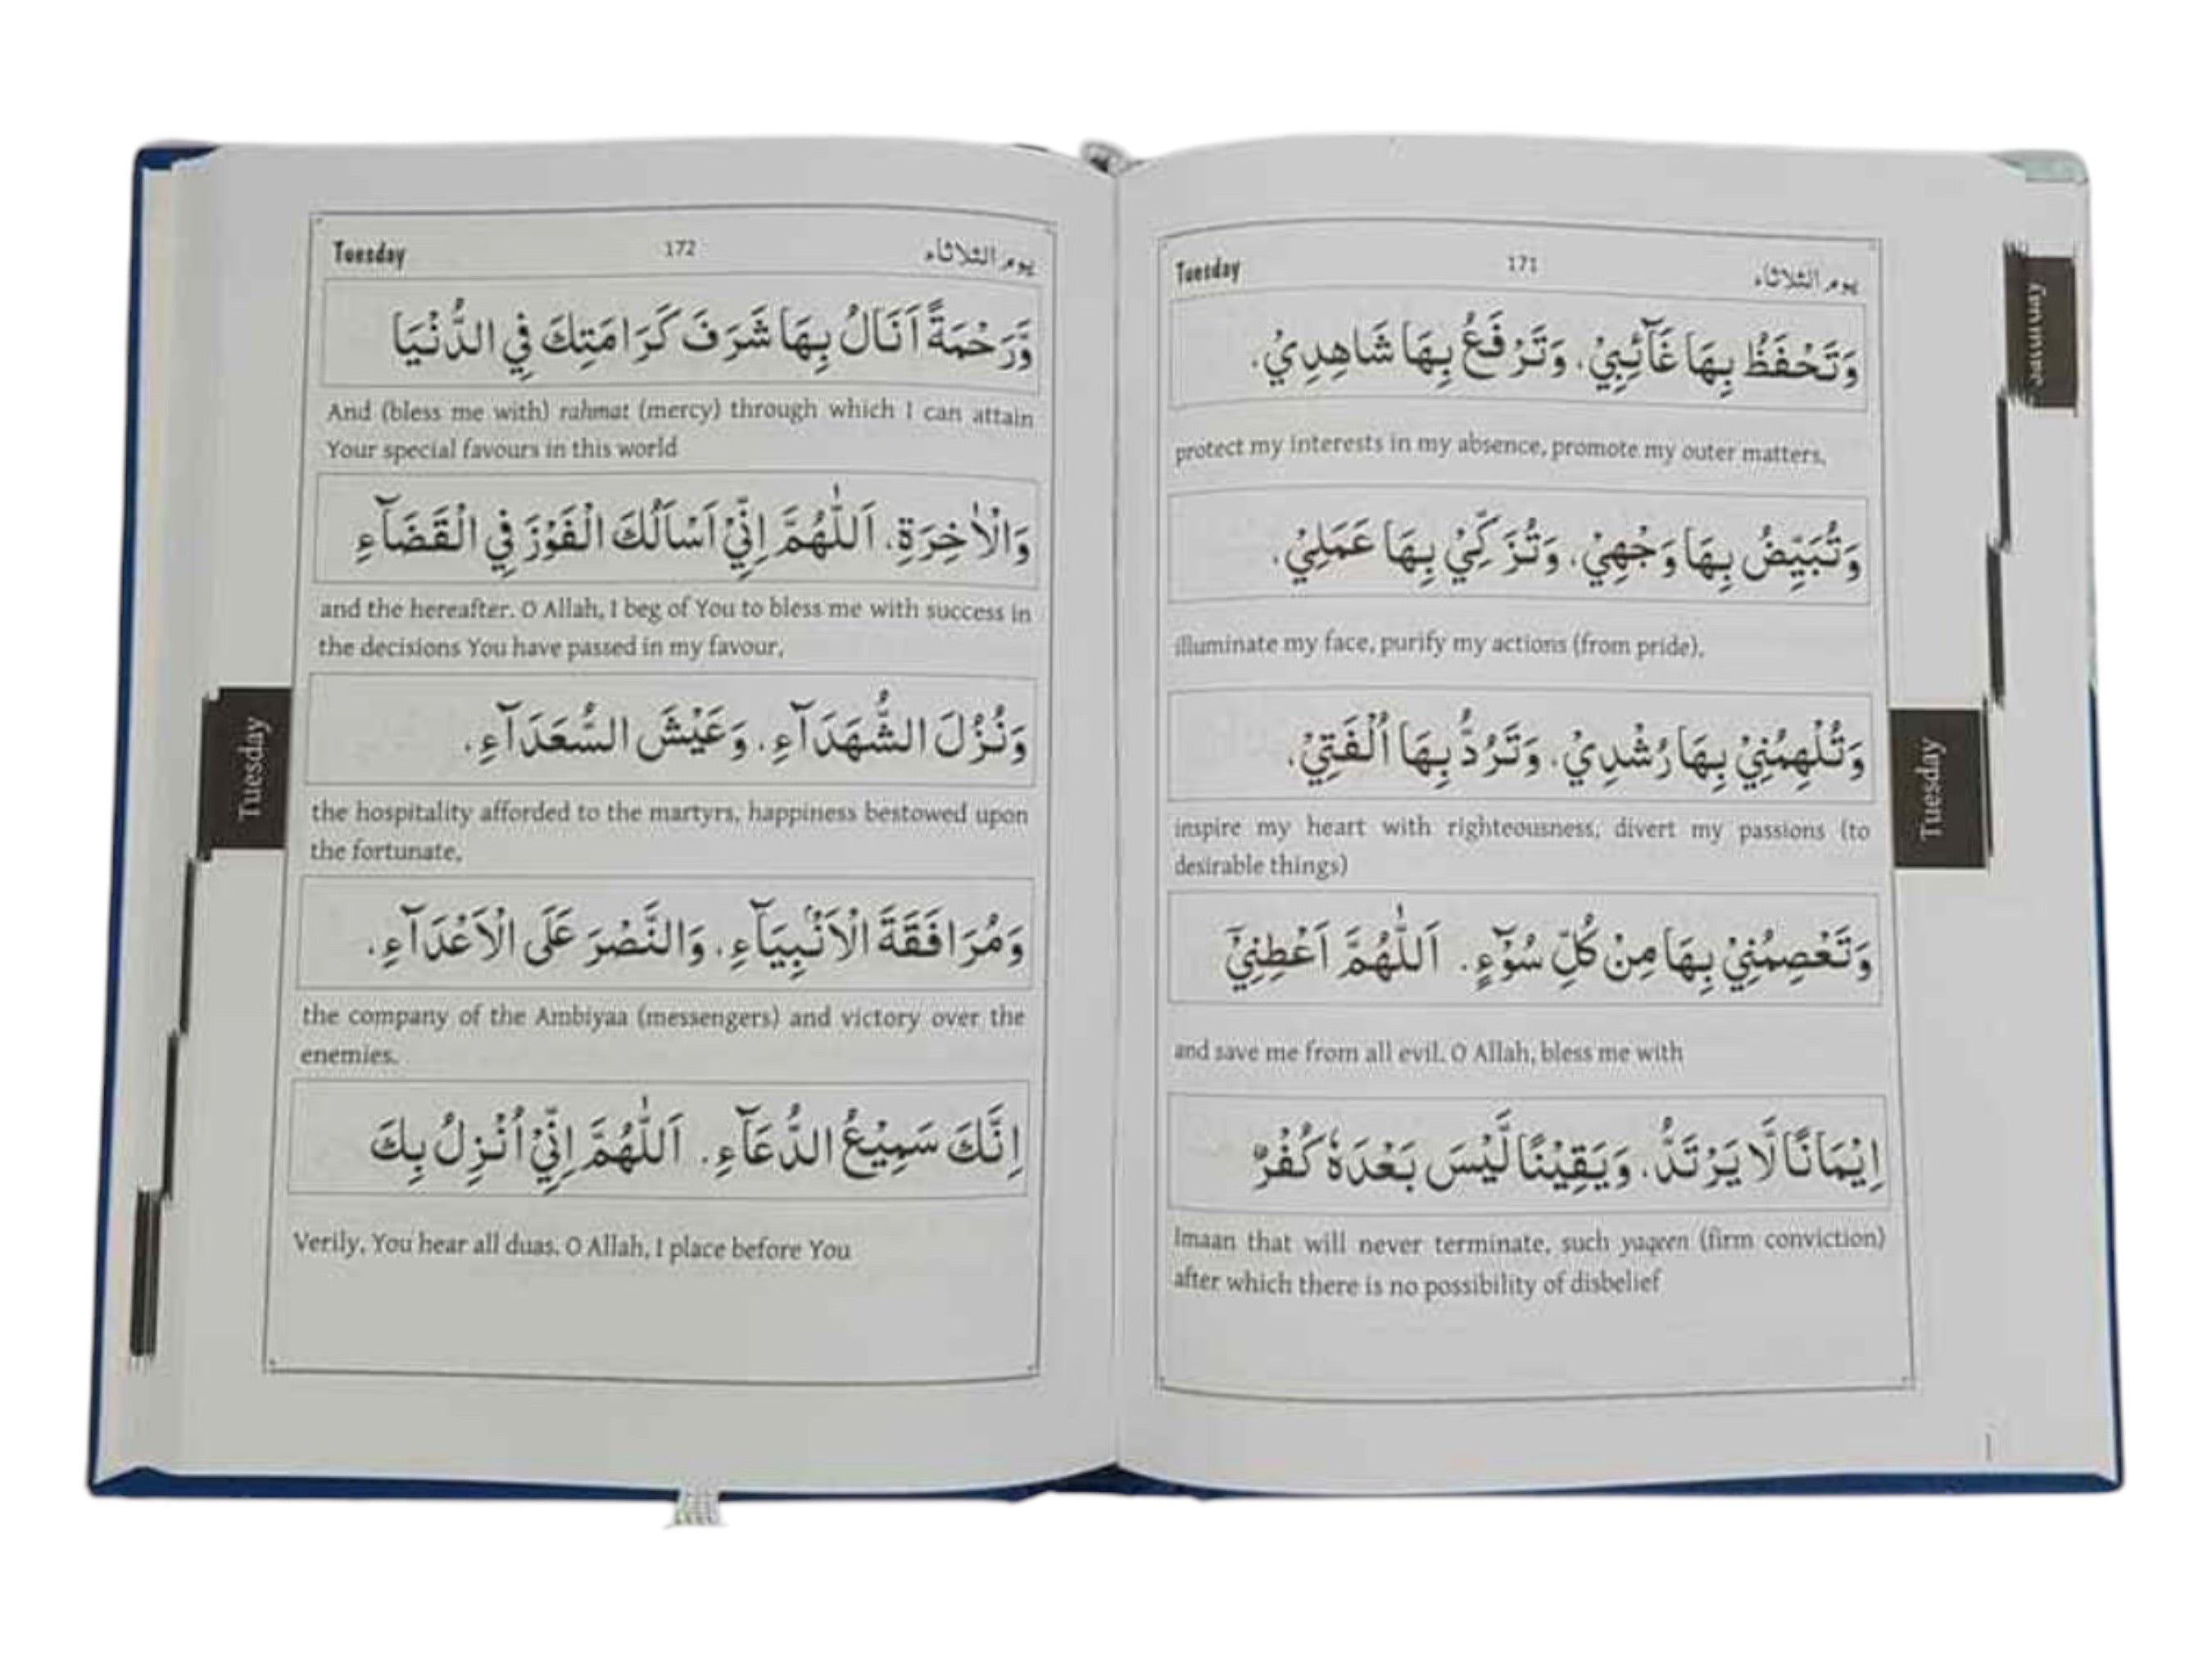 Tuesday 171 يوم الثلاثاء
وَتَحْفَظُ بِهَا غَآئِبِيْ، وَتَرْفَعُ بِهَا شَاهِدِيْ،
protect my interests in my absence, promote my outer matters,
وَتُبَيِّضُ بِهَا وَجْهِيْ، وَتُزَكِّيْ بِهَا عَمَلِيْ،
illuminate my face, purify my actions (from pride),
وَتُلْهِمُنِيْ بِهَا رُشْدِيْ، وَتَرُدُّ بِهَا اُلْفَتِيْ،
inspire my heart with righteousness, divert my passions (to
desirable things)
وَتَعْصِمُنِيْ بِهَا مِنْ كُلِّ سُوْٓءٍ. اَللّٰهُمَّ اَعْطِنِيْٓ
and save me from all evil. O Allah, bless me with
اِيْمَانًا لَّا يَرْتَدُّ، وَيَقِيْنًا لَّيْسَ بَعْدَهٗ كُفْرٌ
Imaan that will never terminate, such yaqeen (firm conviction)
after which there is no possibility of disbelief
Tuesday
Saturday
Tuesday 172 يوم الثلاثاء
وَّرَحْمَةً اَنَالُ بِهَا شَرَفَ كَرَامَتِكَ فِي الدُّنْيَا
And (bless me with) rahmat (mercy) through which I can attain
Your special favours in this world
وَالْاٰخِرَةِ. اَللّٰهُمَّ اِنِّيْ اَسْاَلُكَ الْفَوْزَ فِي الْقَضَآءِ
and the hereafter. O Allah, I beg of You to bless me with success in
the decisions You have passed in my favour,
وَنُزُلَ الشُّهَدَآءِ، وَعَيْشَ السُّعَدَآءِ،
the hospitality afforded to the martyrs, happiness bestowed upon
the fortunate,
وَمُرَافَقَةَ الْاَنْبِيَآءِ، وَالنَّصْرَ عَلَى الْاَعْدَآءِ،
the company of the Ambiyaa (messengers) and victory over the
enemies.
اِنَّكَ سَمِيْعُ الدُّعَآءِ. اَللّٰهُمَّ اِنِّيْ اُنْزِلُ بِكَ
Verily, You hear all duas. O Allah, I place before You
Tuesday